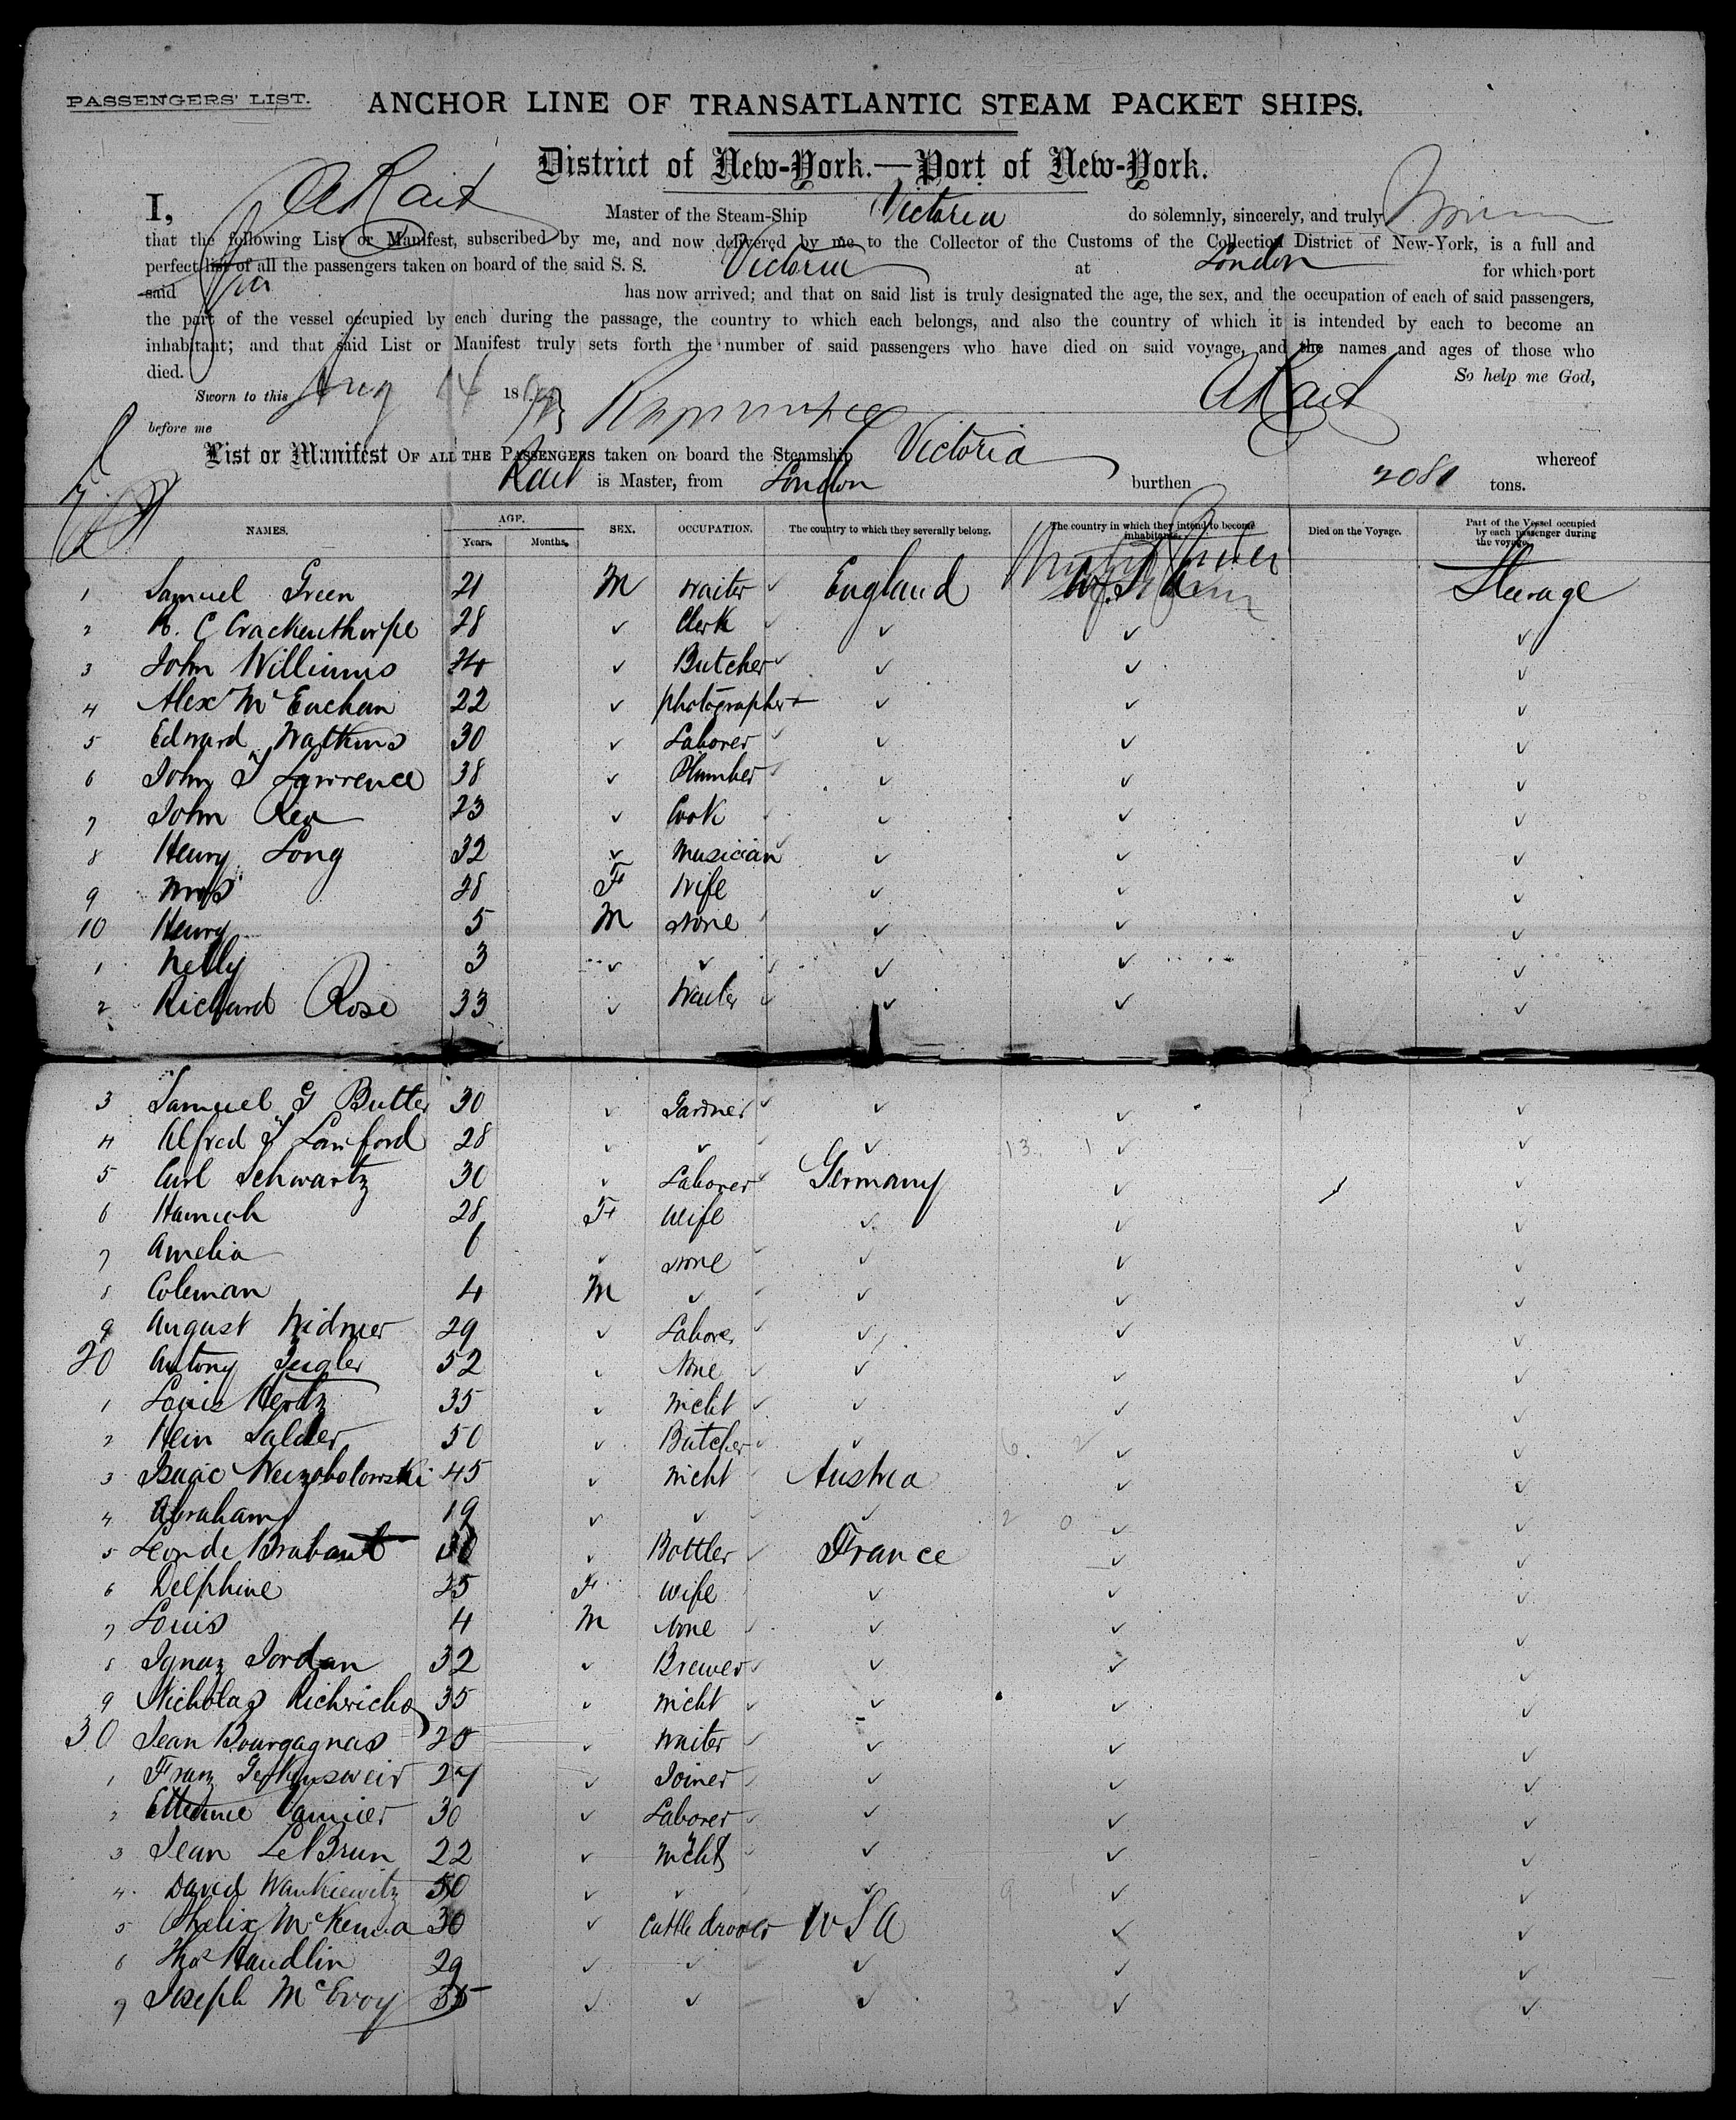 PASSENGERS' LIST.
ANCHOR LINE OF TRANSATLANTIC STEAM PACKET SHIPS.
District of New-York.—Port of New-York.
I, A Rait Master of the Steam-Ship Victoria do solemnly, sincerely, and truly
that the following List or Manifest, subscribed by me, and now delivered by me to the Collector of the Customs of the Collection District of New-York, is a full and
perfect list of all the passengers taken on board of the said S. S. Victoria at London for which port
said has now arrived; and that on said list is truly designated the age, the sex, and the occupation of each of said passengers,
the part of the vessel occupied by each during the passage, the country to which each belongs, and also the country of which it is intended by each to become an
inhabitant; and that said List or Manifest truly sets forth the number of said passengers who have died on said voyage, and the names and ages of those who
died. So help me God,
Sworn to this Aug 14 18 A Rait
before me
List or Manifest OF ALL THE PASSENGERS taken on board the Steamship Victoria whereof
Rait is Master, from London burthen 2081 tons.
NAMES. AGE. Years. Months. SEX. OCCUPATION. The country to which they severally belong. The country in which they intend to become inhabitants. Died on the Voyage. Part of the Vessel occupied by each passenger during the voyage.
1 Samuel Green 21 M Waiter ✓ England U.S.A. Steerage
2 R. C Crackenthorpe 28 ✓ Clerk ✓ ✓ ✓ ✓
3 John Williams 24 ✓ Butcher ✓ ✓ ✓ ✓
4 Alex McEachan 22 ✓ photographer ✓ ✓ ✓
5 Edward Watkins 30 ✓ Laborer ✓ ✓ ✓ ✓
6 John T Lawrence 38 ✓ Plumber ✓ ✓ ✓ ✓
7 John Rea 23 ✓ Cook ✓ ✓ ✓
8 Henry Long 32 ✓ Musician ✓ ✓ ✓
9 Mrs " 28 F Wife ✓ ✓ ✓
10 Henry 5 M None ✓ ✓ ✓ ✓
1 Nelly 3 ✓ ✓ ✓ ✓ ✓ ✓
2 Richard Rose 33 ✓ Waiter ✓ ✓ ✓ ✓
3 Samuel G Butler 30 ✓ Gardner ✓ ✓ ✓ ✓
4 Alfred J Lanford 28 ✓ ✓ ✓ ✓ 13 1 ✓ ✓
5 Carl Schwartz 30 ✓ Laborer ✓ Germany ✓ ✓
6 Hannah 28 F Wife ✓ ✓ ✓
7 Amelia 6 ✓ None ✓ ✓ ✓ ✓
8 Coleman 4 M ✓ ✓ ✓ ✓ ✓
9 August Widmer 29 ✓ Laborer ✓ ✓ ✓ ✓
20 Antony Zugler 52 ✓ None ✓ ✓ ✓ ✓
1 Louis Hertz 35 ✓ Mcht ✓ ✓ ✓ ✓
2 Hein 50 ✓ Butcher ✓ ✓ 6 2 ✓ ✓
3 Isaac 45 ✓ Mcht Austria ✓ ✓
4 Abraham 19 ✓ ✓ ✓ ✓ 2 0 ✓ ✓
5 Leon de Brabant 30 ✓ Bottler ✓ France ✓ ✓
6 Delphine 25 F Wife ✓ ✓ ✓
7 Louis 4 M None ✓ ✓ ✓ ✓
8 Ignaz Jordan 32 ✓ Brewer ✓ ✓ ✓ ✓
9 Nicholas 35 ✓ Mcht ✓ ✓ ✓ ✓
30 Jean Bourgagnas 28 ✓ Waiter ✓ ✓ ✓ ✓
1 Franz 27 ✓ Joiner ✓ ✓ ✓ ✓
2 Ettienne 30 ✓ Laborer ✓ ✓ ✓ ✓
3 Jean LeBrun 22 ✓ Mcht ✓ ✓ ✓ ✓
4 David Wankiewitz 50 ✓ ✓ ✓ 9 ✓ ✓
5 McKenna 30 ✓ Cattle drover U S A ✓ ✓
6 Thos Handlin 29 ✓ ✓ ✓ ✓ ✓
7 Joseph McEvoy 35 ✓ ✓ ✓ 3 ✓ ✓